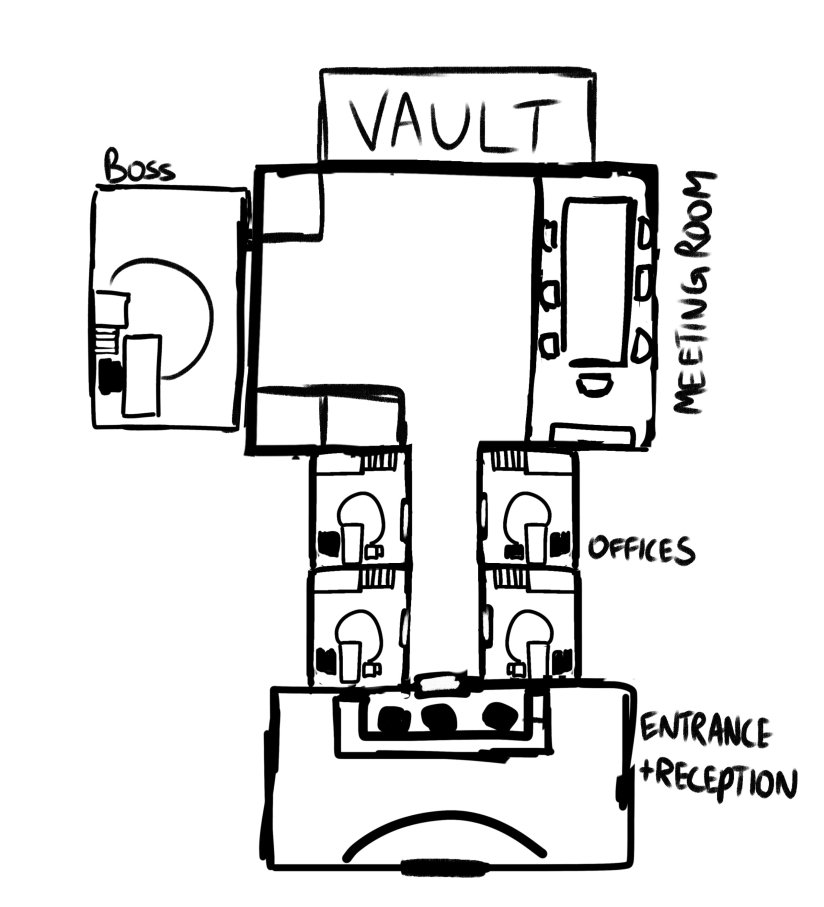 VAULT
BOSS
MEETING ROOM
OFFICES
ENTRANCE
+RECEPTION